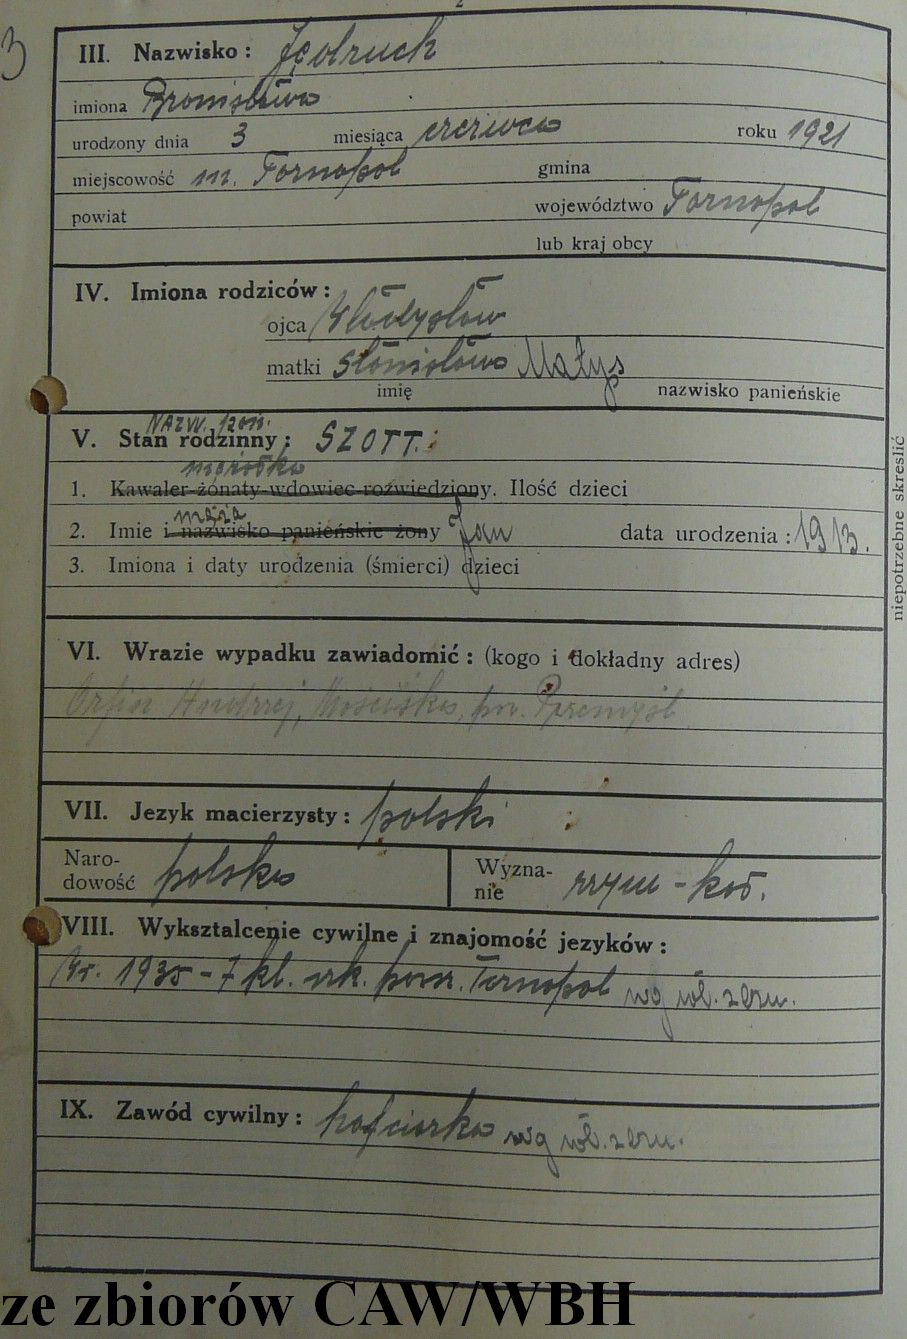 2
3
III. Nazwisko: Jędruch
imiona Bronisława
urodzony dnia 3 miesiąca czerwca roku 1921
miejscowość m. Tarnopol gmina
powiat województwo Tarnopol
lub kraj obcy
IV. Imiona rodziców:
ojca Władysław
matki Stanisława Małys
imię nazwisko panieńskie
NAZW. 
V. Stan rodzinny: SZOTT.
mężatka
1. Kawaler-żonaty-wdowiec-rozwiedziony. Ilość dzieci
męża
2. Imie i nazwisko panieńskie żony Jan data urodzenia: 1913.
3. Imiona i daty urodzenia (śmierci) dzieci
niepotrzebne skreślić
VI. Wrazie wypadku zawiadomić: (kogo i dokładny adres)
Andrzej, Mościska, pow. Przemyśl
VII. Jezyk macierzysty: polski
Naro-
dowość polska
Wyzna-
nie rzym-kat.
VIII. Wykształcenie cywilne i znajomość jezyków:
W r. 1935 - 7 kl. szk. powsz. Tarnopol wg wł. zezn.
IX. Zawód cywilny: hafciarka wg wł. zezn.
ze zbiorów CAW/WBH